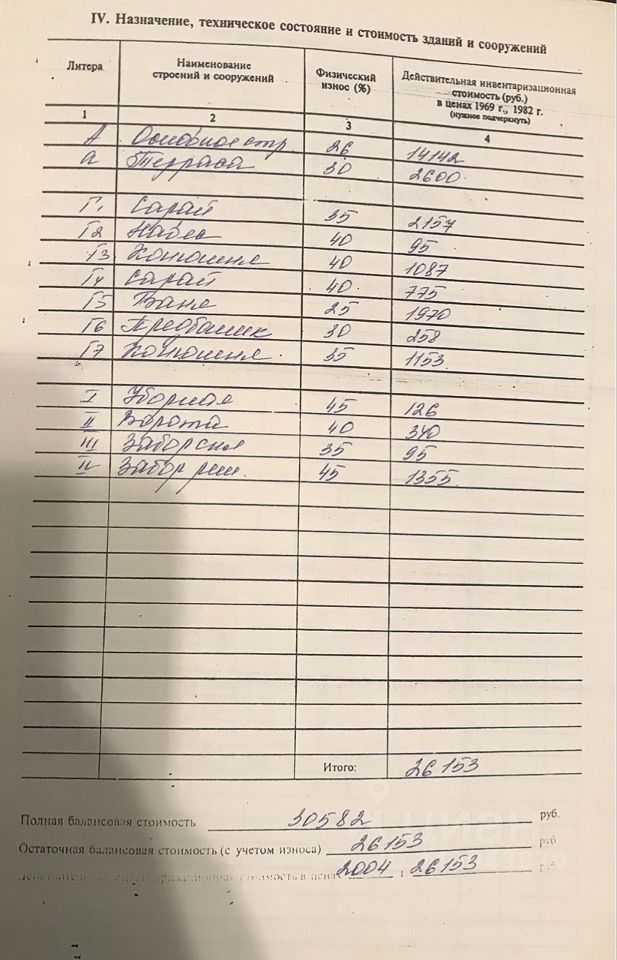 IV. Назначение, техническое состояние и стоимость зданий и сооружений
Литера Наименование строений и сооружений Физический износ (%) Действительная инвентаризационная стоимость (руб.) в ценах 1969 г., 1982 г. (нужное подчеркнуть)
1 2 3 4
А Основное стр. 26 14142
а Терраса 30 2600
Г1 Сарай 35 2157
Г2 Навес 40 95
Г3 Конюшня 40 1087
Г4 Сарай 40 775
Г5 Баня 25 1970
Г6 Предбанник 30 258
Г7 Конюшня 35 1153
I Уборная 45 126
II Ворота 40 340
III Забор 35 95
IV Забор реш. 45 1355
Итого: 26153
Полная балансовая стоимость 30582 руб.
Остаточная балансовая стоимость (с учетом износа) 26153 руб
инвентаризационная стоимость в ценах 2004 г. 26153
циан